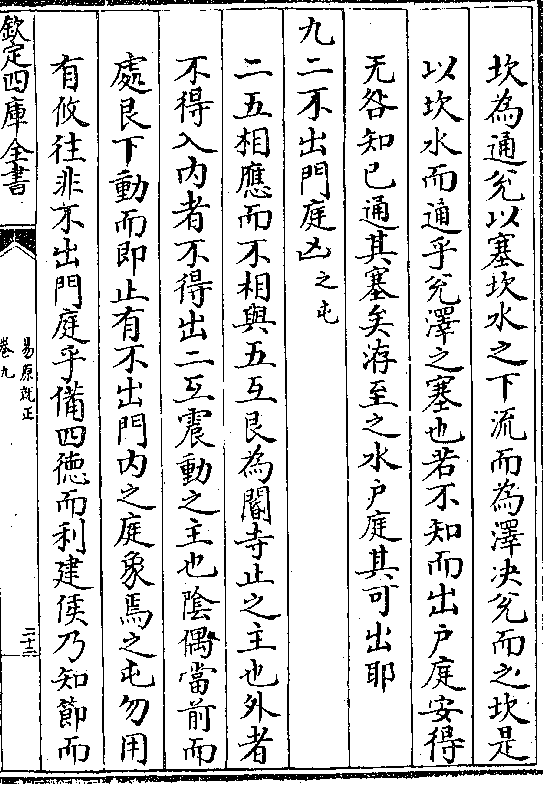 坎為通兊以塞坎水之下流而為澤决兊而之坎是
以坎水而通乎兊澤之塞也若不知而出戸庭安得
无咎知已通其塞矣洊至之水戸庭其可出耶
九二不出門庭凶之屯
二五相應而不相與五互艮為閽寺止之主也外者
不得入内者不得出二互震動之主也陰偶當前而
處艮下動而即止有不出門内之庭象焉之屯勿用
有攸往非不出門庭乎備四德而利建侯乃知節而
欽定四庫全書
易原就正
卷九
二十三